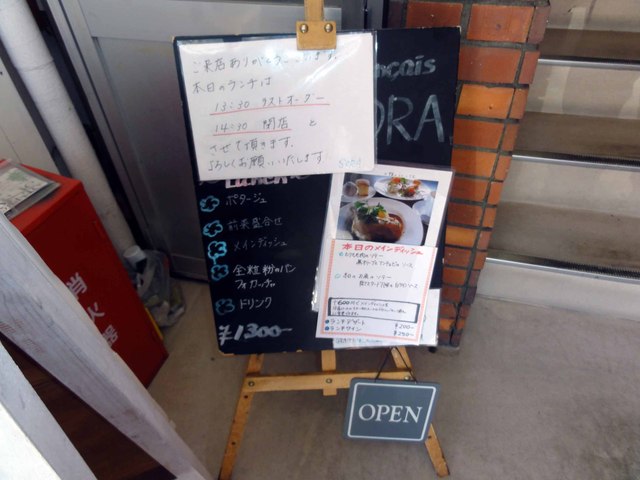 ご来店ありがとうございます。
本日のランチは
13:30 ラストオーダー
14:30 閉店 と
させて頂きます。
よろしくお願いいたします
nçais
ORA
LUNCH
ポタージュ
前菜盛合せ
メインディッシュ
全粒粉のパン
フォカッチャ
ドリンク
¥1300-
本日のメインディッシュ
ソース
本日のお魚のソテー
ソース
ランチデザート ¥200-
ランチワイン ¥250-
OPEN
消
火
器